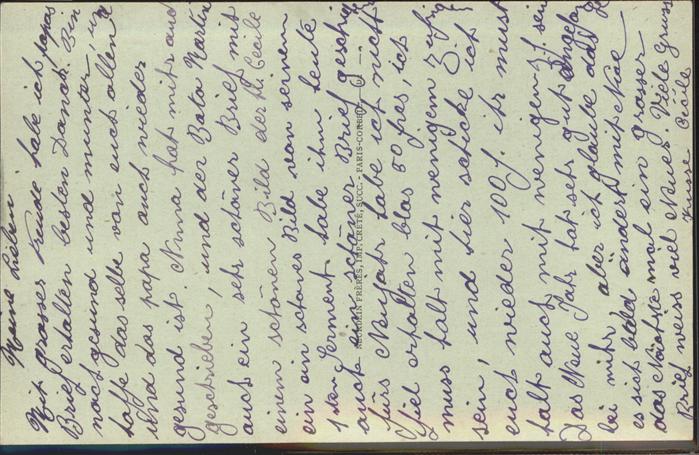 Meine Lieben
Mit grosser freude habe ich papas
Brief erhallen besten Danak. Bin
noch gesund und munter, und
hoffe das selbe von euch allen
und das papa auch wieder
gesund ist Ninna hat mir auch
geschieben, und der Bata Martin
auch ein sehr schöner Brief mit
einem schönen Bild der Hl. Cecile
ein ein schönes Bild von seinem
1 ten habe ihm heute
auch ein schöner Brief geschi
fürs Neujahr habe ich nicht
fiel erhalten blos 50 frcs, ich
muss halt mit wenigem zufri
sein, und hier schicke ich
euch wieder 100 f. ihr musst
halt auch mit wenigem zf. sein
Das Neue Jahr hat sehr gut angefa
bei mihr aber ich glaube das
es sich bald ändert mit
das Nächste mal ein grosser
Brief weiss viel Neues. Viele Gruss
Kusse Cécile
NEURDEIN FRÈRES, IMP. CRÉTÉ, SUCC. - PARIS-CORBEIL